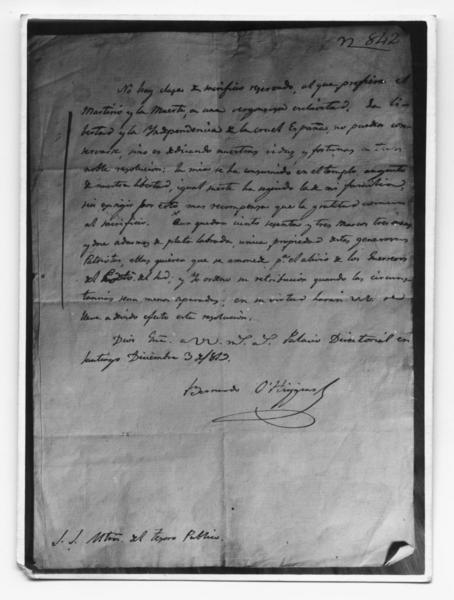 n. 842
No hay clase de sacrificio reservado, al que prefiere el
Martirio y la Muerte, a una vergonzosa esclavitud. La Li-
bertad y la Independencia de la cruel España, no pueden con-
servarse, sino es dedicando nuestras vidas y fortunas a tan
noble resolucion: la mia se ha consumido en el templo augusto
de nuestra libertad, igual suerte ha seguido la de mi familia,
sin exigir por esto mas recompensa que la gratitud comun
al sacrificio. Aun quedan ciento sesenta y tres marcos tres onzas
y doce adarmes de plata labrada, unica propiedad de tres generosos
Patriotas, ellos quieren que se amonede pa. el alivio de los Guerreros
del y Yo ordeno su retribucion quando las circuns-
tancias sean menos apuradas; en su virtud haran VV. se
lleve a devido efecto esta resolucion.
Dios Gue. a VV. m.s a.s Palacio Directorial en
Santiago Diciembre 3 de 1819.
Bernardo O'Higgins
S. S. Mtros. del tesoro Publico